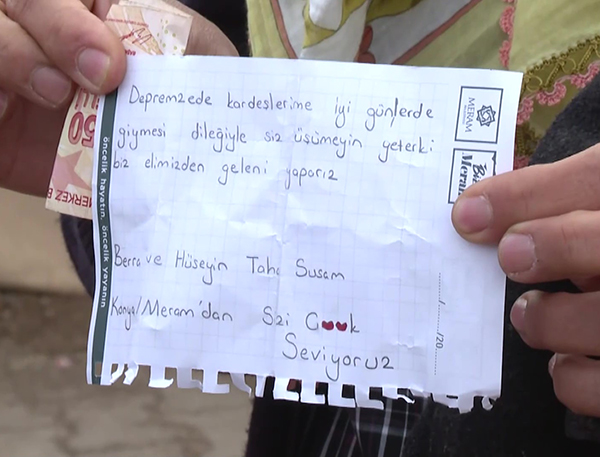 Depremzede kardeslerime iyi günlerde
giymesi dileğiyle siz üsümeyin yeterki
biz elimizden geleni yaparız
Berra ve Hüseyin Taha Susam
Konya/Meram'dan Sizi Cook
Seviyoruz
MERAM
Meram
öncelik hayatın, öncelik yayanın
...../...../20.....
50
MERKEZ B